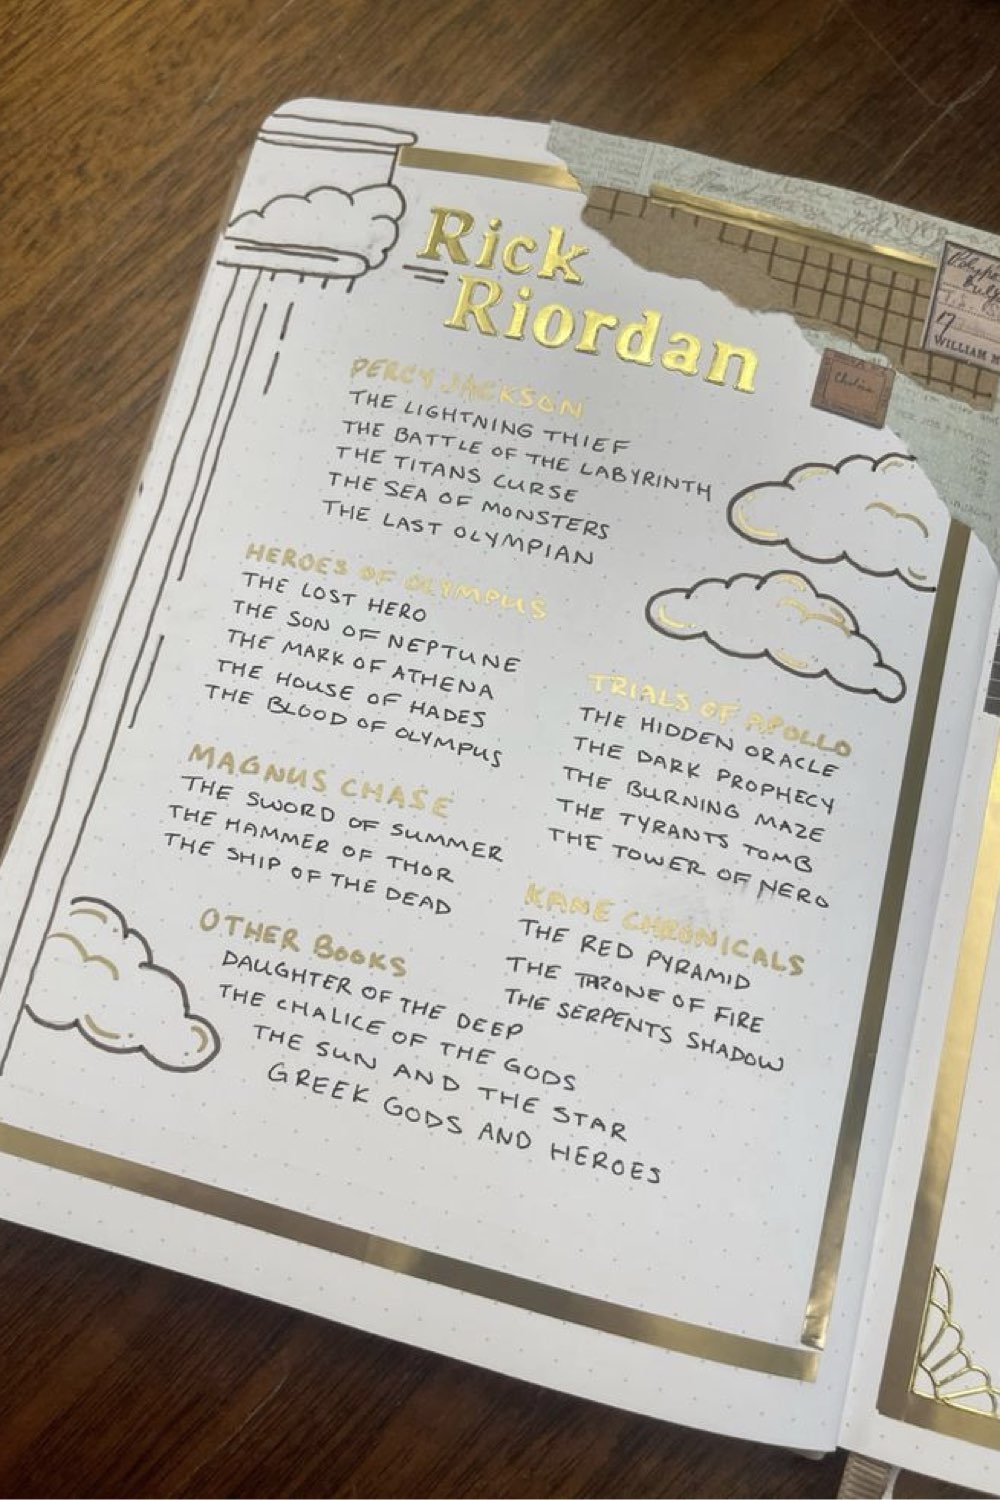 Rick
Riordan
PERCY JACKSON
THE LIGHTNING THIEF
THE BATTLE OF THE LABYRINTH
THE TITANS CURSE
THE SEA OF MONSTERS
THE LAST OLYMPIAN
HEROES OF OLYMPUS
THE LOST HERO
THE SON OF NEPTUNE
THE MARK OF ATHENA
THE HOUSE OF HADES
THE BLOOD OF OLYMPUS
MAGNUS CHASE
THE SWORD OF SUMMER
THE HAMMER OF THOR
THE SHIP OF THE DEAD
OTHER BOOKS
DAUGHTER OF THE DEEP
THE CHALICE OF THE GODS
THE SUN AND THE STAR
GREEK GODS AND HEROES
TRIALS OF APOLLO
THE HIDDEN ORACLE
THE DARK PROPHECY
THE BURNING MAZE
THE TYRANTS TOMB
THE TOWER OF NERO
KANE CHRONICALS
THE RED PYRAMID
THE THRONE OF FIRE
THE SERPENTS SHADOW
17
WILLIAM